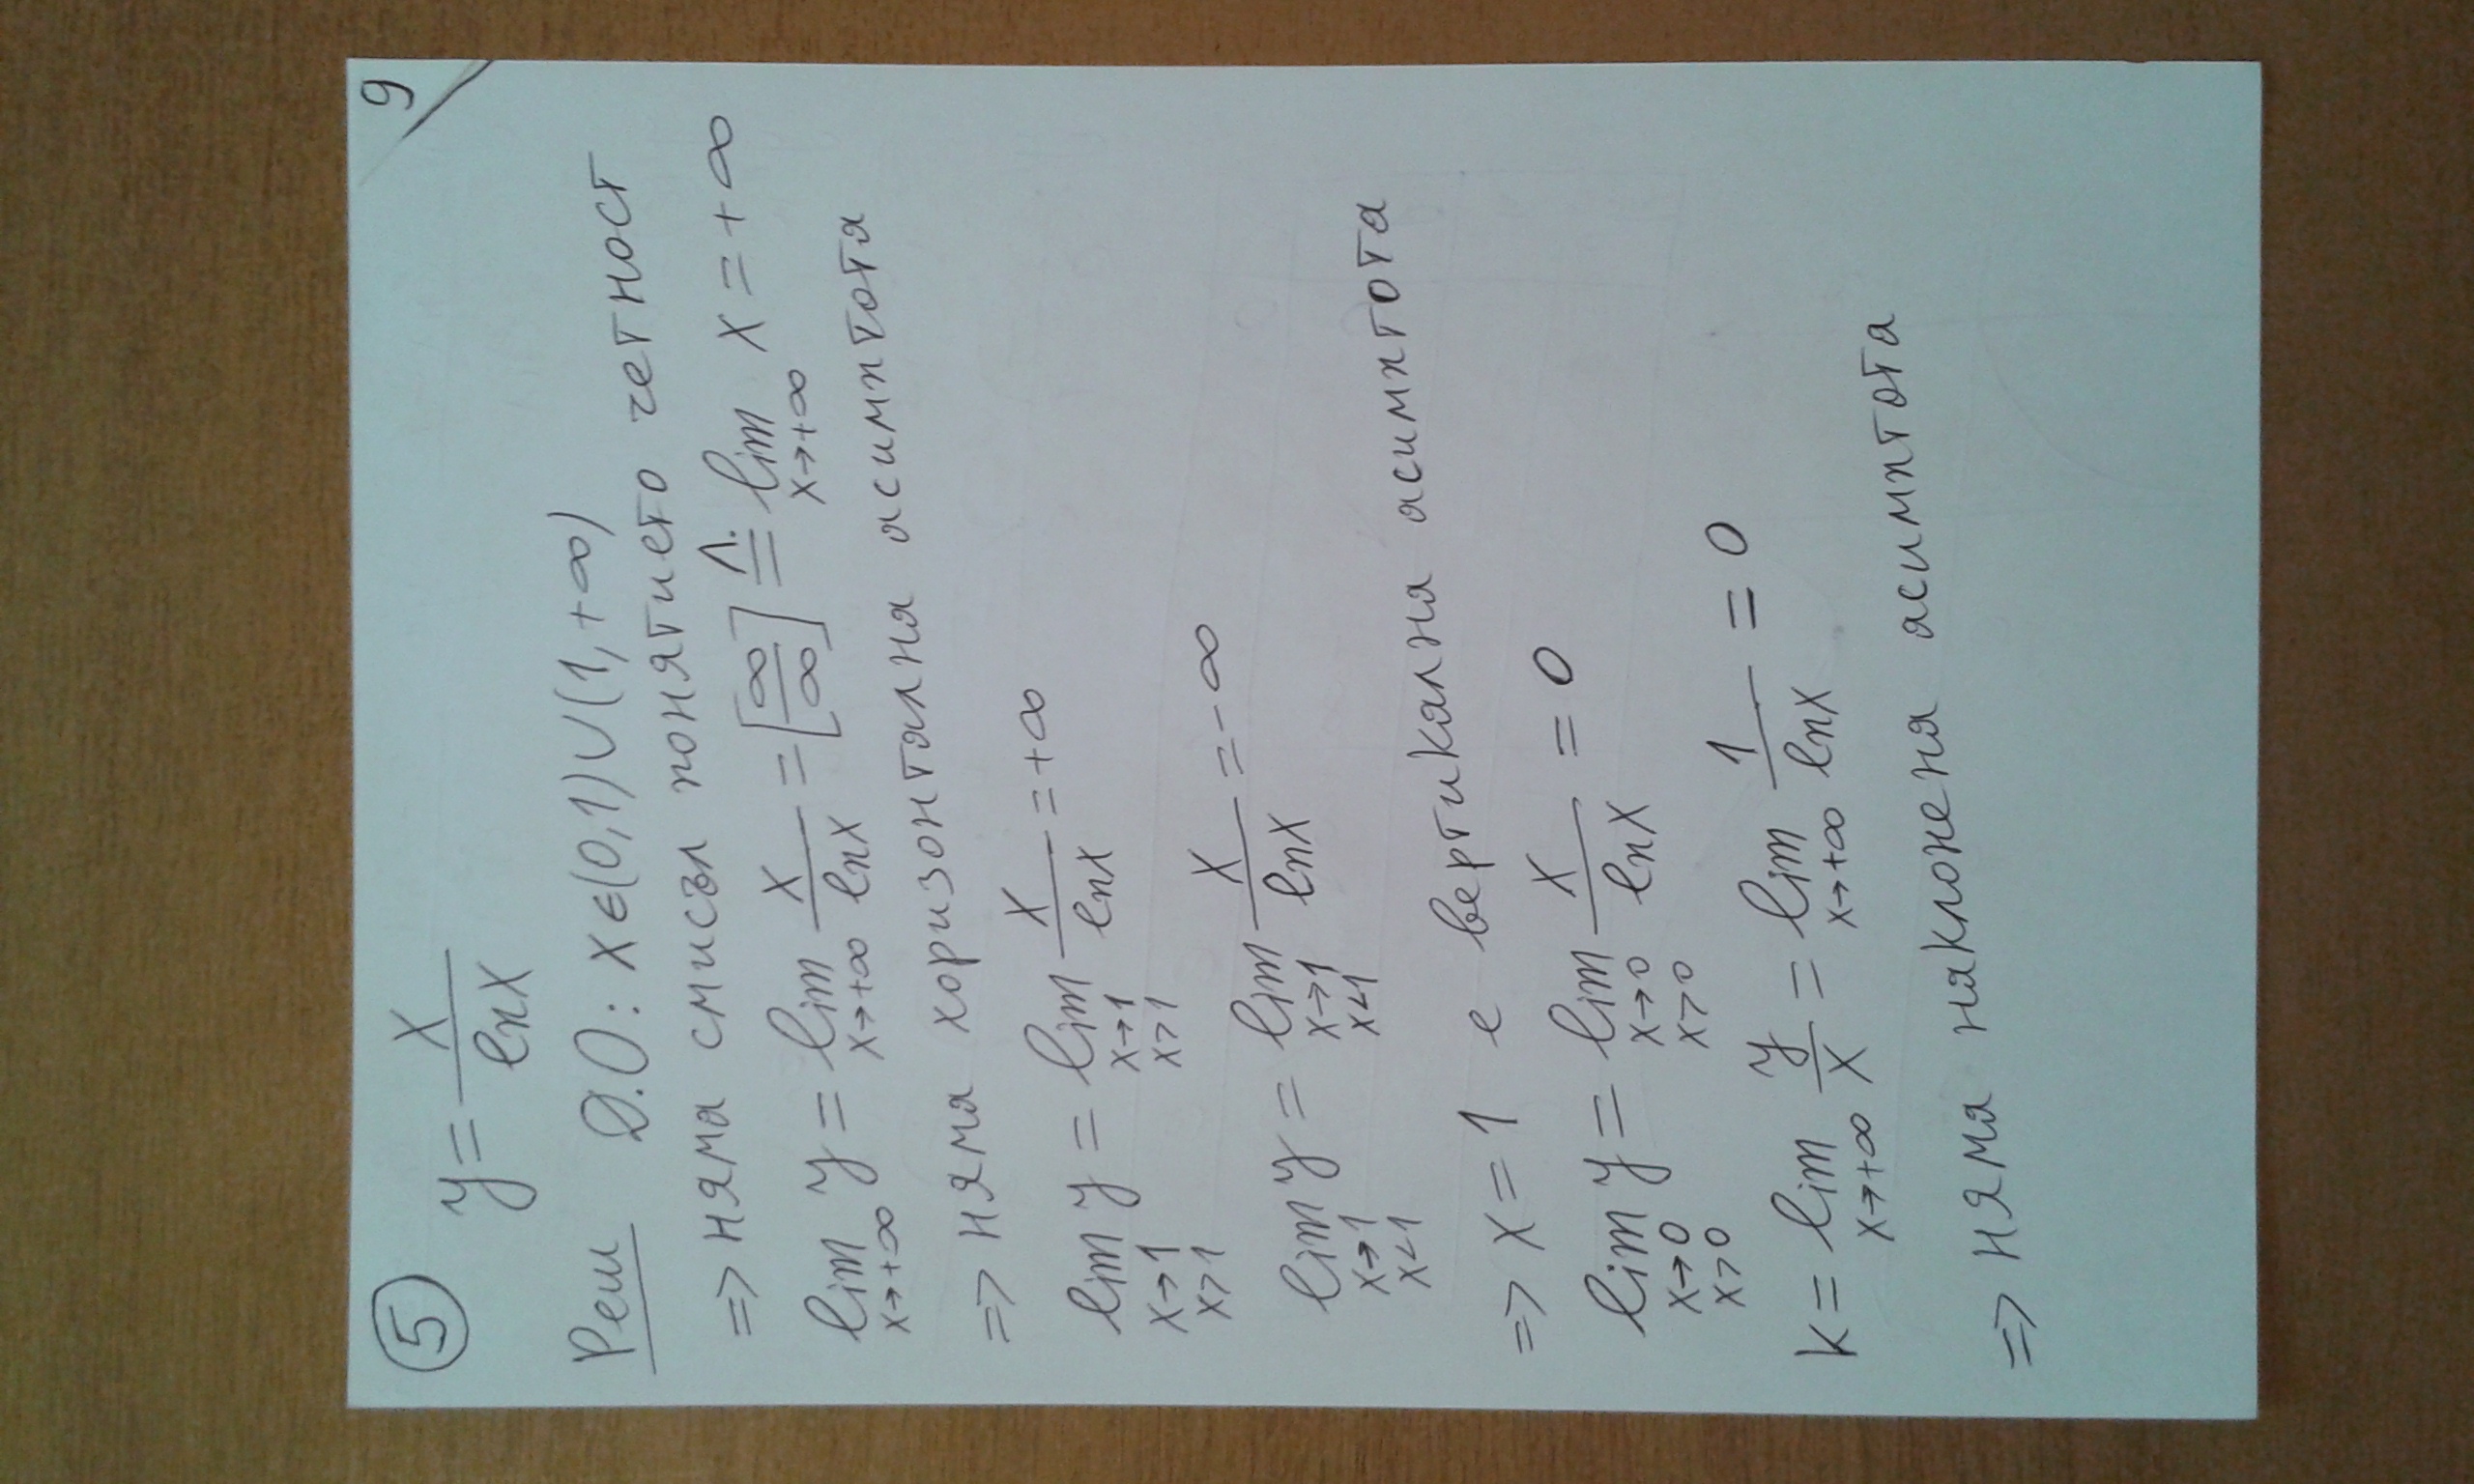 9
⑤ y = x / lnx
Реш Д.О: x∈(0,1)∪(1,+∞)
=> няма смисъл понятието четност
lim_{x→+∞} y = lim_{x→+∞} x / lnx = [∞/∞] =^{Л.} lim_{x→+∞} x = +∞
=> няма хоризонтална асимптота
lim_{x→1, x>1} y = lim_{x→1, x>1} x / lnx = +∞
lim_{x→1, x<1} y = lim_{x→1, x<1} x / lnx = -∞
=> x = 1 е вертикална асимптота
lim_{x→0, x>0} y = lim_{x→0, x>0} x / lnx = 0
k = lim_{x→+∞} y / x = lim_{x→+∞} 1 / lnx = 0
=> няма наклонена асимптота